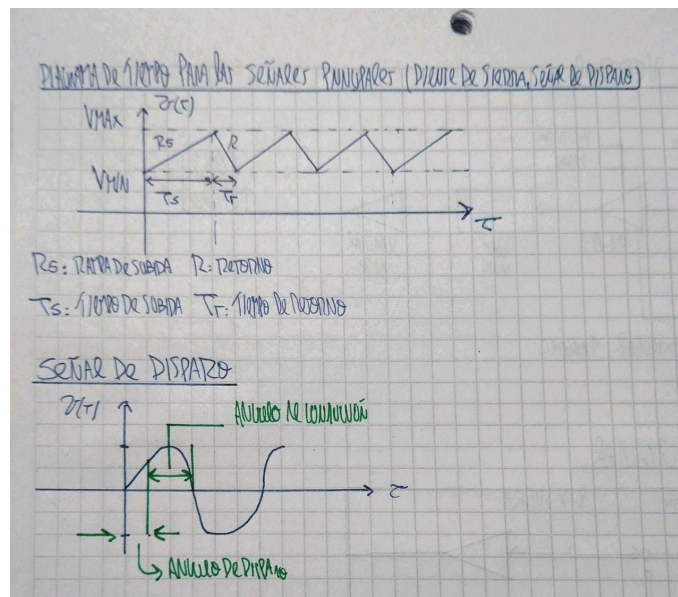 DIAGRAMA DE TIEMPO PARA LAS SEÑALES PRINCIPALES (DIENTE DE SIERRA, SEÑAL DE DISPARO)
VMAX
V(T)
RS
R
VMIN
TS
Tr
T
RS: RAMPA DE SUBIDA R: RETORNO
TS: TIEMPO DE SUBIDA Tr: TIEMPO DE RETORNO
SEÑAL DE DISPARO
V(T)
ANGULO DE CONDUCCIÓN
T
ANGULO DE DISPARO